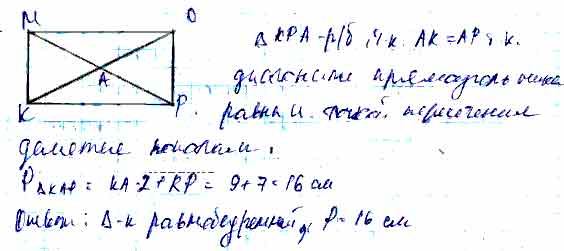 M O
Δ KPA - р/б, т.к. AK = AP, т.к.
A
диагонали прямоугольника
K P.
равны и точкой пересечения
делятся пополам.
P ΔKAP = KA·2 + KP = 9 + 7 = 16 см
Ответ: Δ-к равнобедренный, P = 16 см